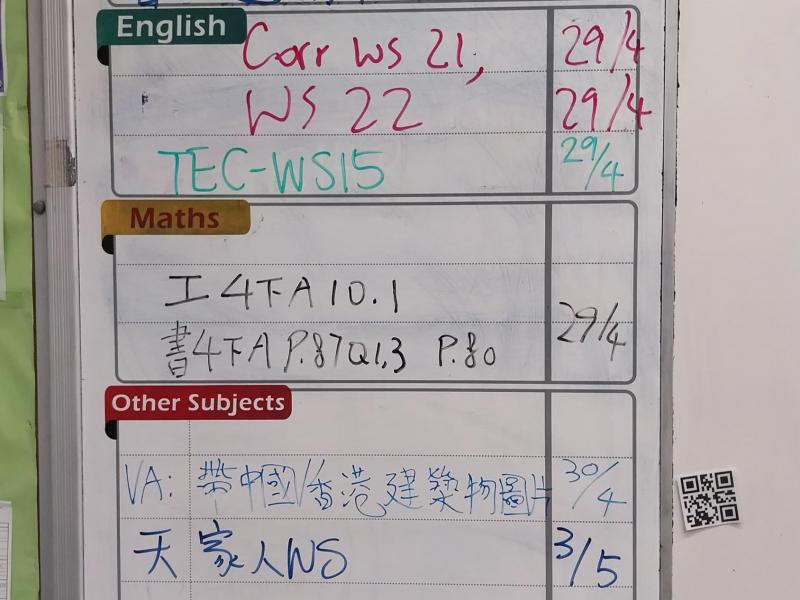 English
Corr WS 21, 29/4
WS 22 29/4
TEC-WS15 29/4
Maths
工4下A 10.1
書4下A P.87Q1,3 P.80 29/4
Other Subjects
VA: 帶中國/香港建築物圖片 30/4
天 家人WS 3/5